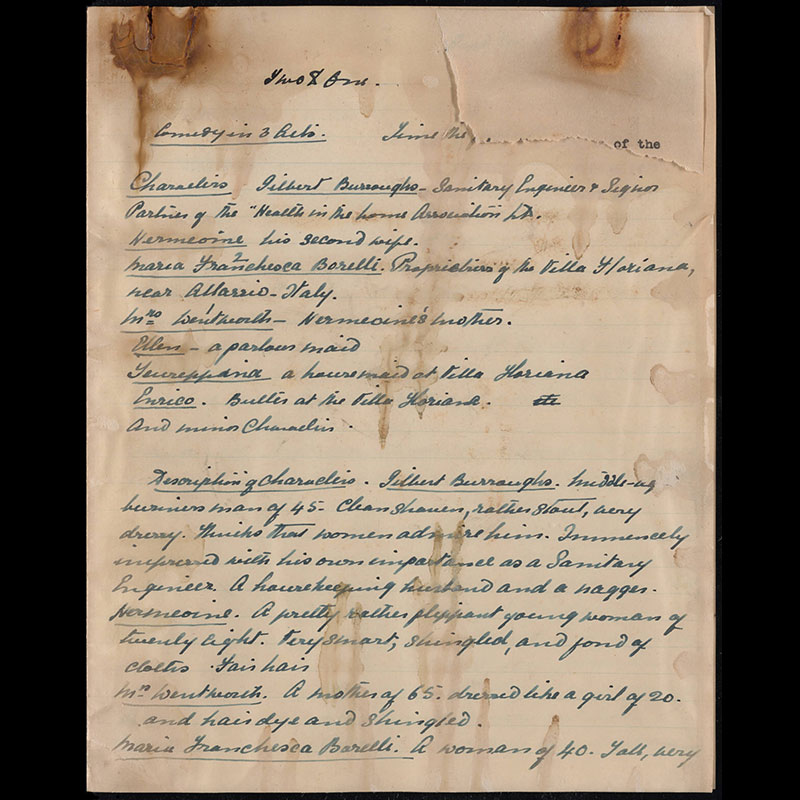 Two & One.
Comedy in 3 Acts. Time the
of the
Characters Gilbert Burroughs - Sanitary Engineer & Signor
Partner of the "Health in the home Association Lt.
Hermeoine his second wife.
Maria Franchesca Borelli. Proprietress of the Villa Floriana,
near Allassio - Italy.
Mrs Wentworth - Hermeoine's mother.
Ellen - a parlour maid
a housemaid at Villa Floriana
Enrico. Butler at the Villa Floriana.
And minor Characters.
Description of characters. Gilbert Burroughs. Middle-ag
business man of 45. Clean shaven, rather stout, very
dressy. Thinks that women admire him. Immencely
impressed with his own importance as a Sanitary
Engineer. A housekeeping husband and a nagger.
Hermeoine. A pretty rather flippant young woman of
twenty eight. Very smart, shingled, and fond of
cloths. Fair hair
Mrs Wentworth. A mother of 65. dressed like a girl of 20.
and hair dye and shingled.
Maria Franchesca Borelli. A woman of 40. Tall, very